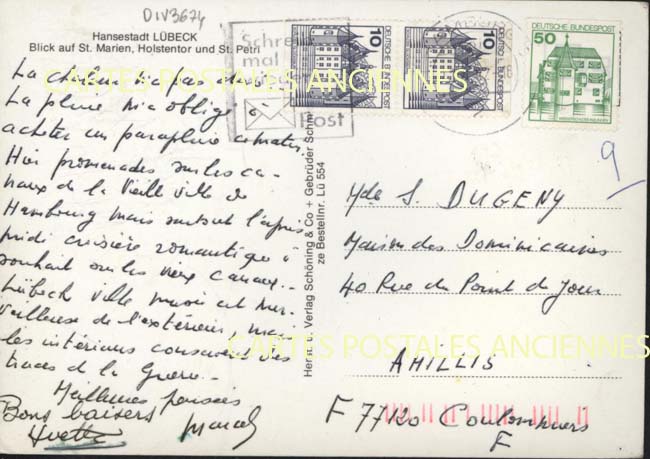 DIV3674
Hansestadt LÜBECK
Blick auf St. Marien, Holstentor und St. Petri
La chaleur n'a pas
La pluie m'a obligé à
acheter un parapluie ce matin.
Hier promenades sur les ca-
naux de la Vieille ville de
Hambourg mais surtout l'après
midi croisière romantique à
souhait sur les vieux canaux.
Lübeck ville musée est mer-
veilleuse de l'extérieur, mais
les intérieurs conservent des
traces de la Guerre.
Meilleures pensées
Bons baisers
Yvette
Marcel
Herst. u. Verlag Schöning & Co + Gebrüder Schmidt
ze Bestellnr. Lü 554
Schreib
mal
Post
10
DEUTSCHE BUNDESPOST
10
DEUTSCHE BUNDESPOST
DEUTSCHE BUNDESPOST
50
9
Mde S. DUGENY
Maison des Dominicaines
40 Rue du Point du Jour
AMILLIS
F 77120 Coulommiers
F
CARTES POSTALES ANCIENNES
CARTES POSTALES ANCIENNES